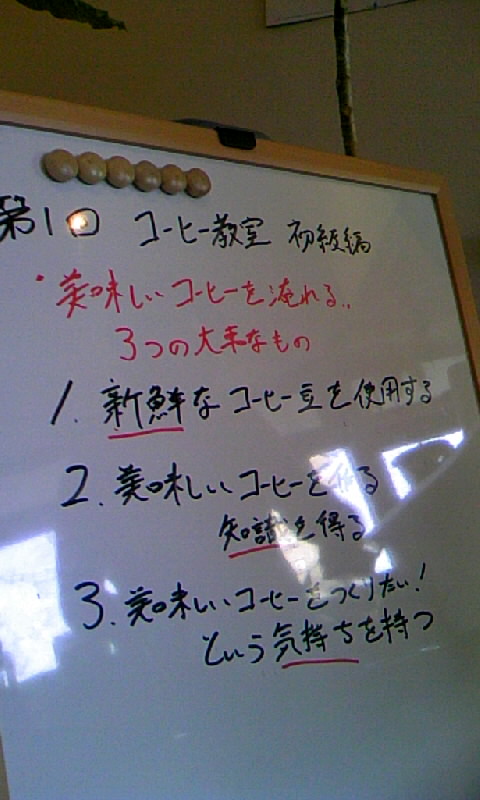 第1回 コーヒー教室 初級編
・美味しいコーヒーを淹れる..
3つの大事なもの
1. 新鮮なコーヒー豆を使用する
2. 美味しいコーヒーを作る
知識を得る
3. 美味しいコーヒーをつくりたい!
という気持ちを持つ